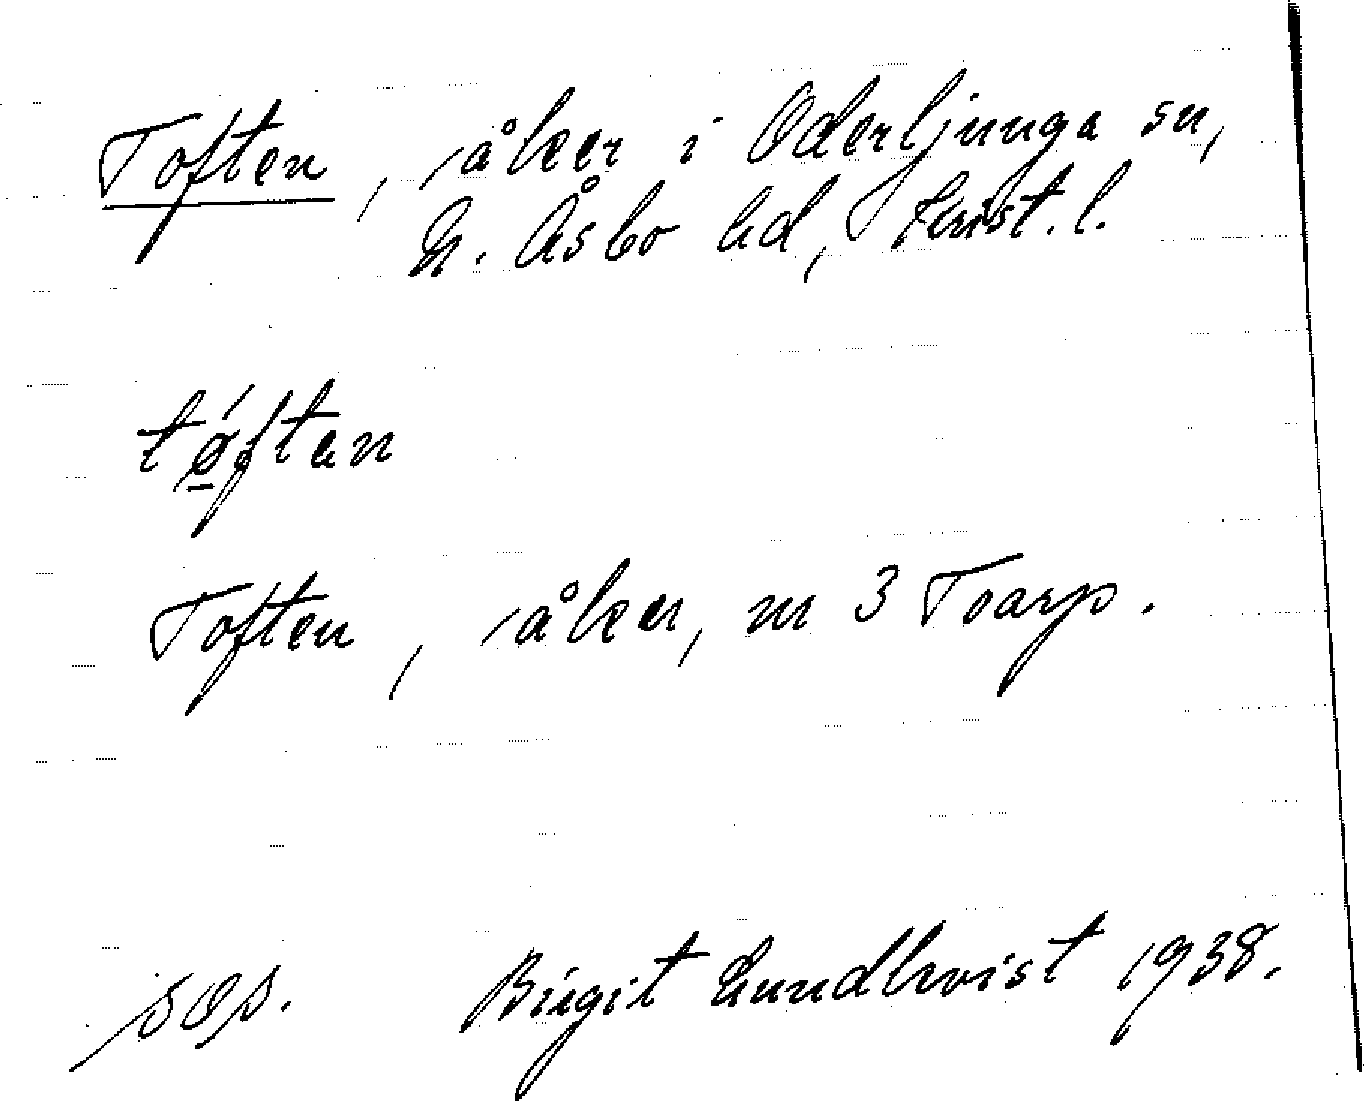 Toften, åker i Oderljunga sn,
N. Åsbo hd, Krist. l.
tǿftan
Toften, åker, nr 3 Toarp.
Birgit Lundkvist 1938.